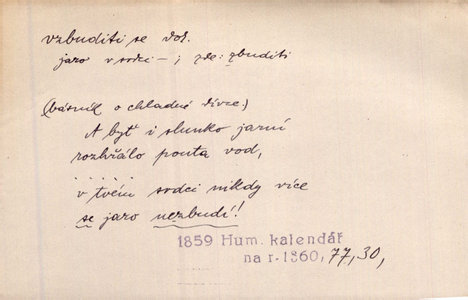 vzbuditi se dok.
jaro v srdci – ; zde: zbuditi
(básník o chladné dívce.)
A byť i slunko jarní
rozhřálo pouta vod,
......
v tvém srdci nikdy více
se jaro nezbudí!
1859 Hum. kalendář
na r. 1860, 77, 30,